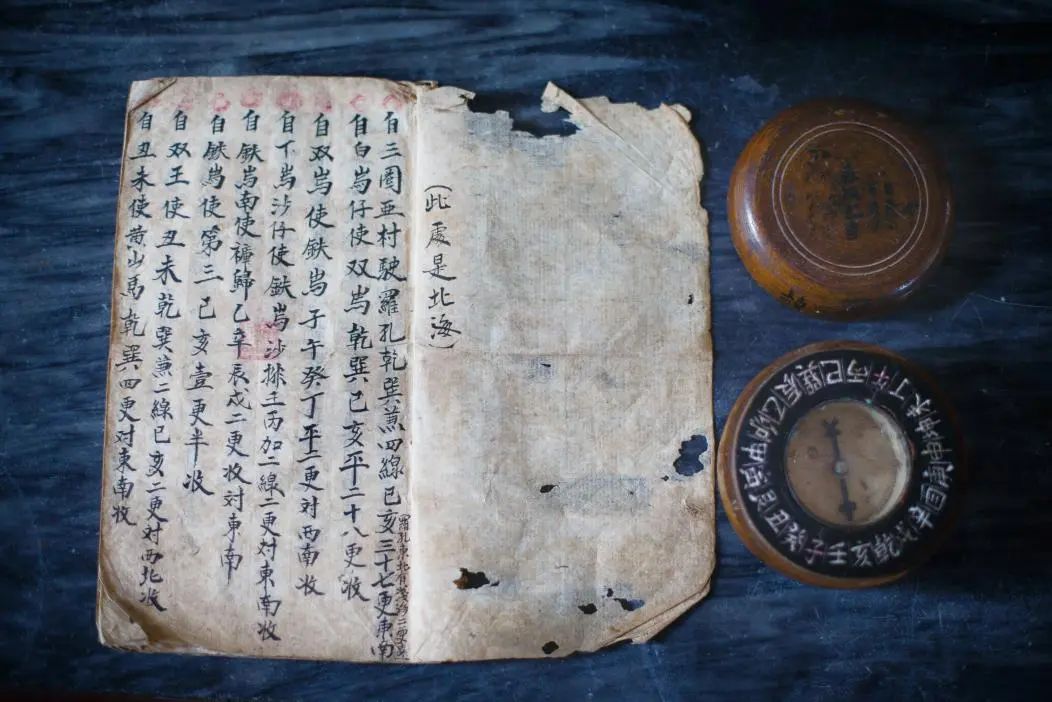 （此處是北海）
自三圈亚村駛羅孔乾巽兼四線已亥三十七更東南
自白峙仔使双峙乾巽已亥平二十八更收
自双峙使鉄峙子午癸丁平二更对西南收
自下峙沙仔使鉄峙沙排壬丙加二線二更对東南收
自鉄峙南使裤歸乙辛辰戌二更收对東南
自鉄峙使第三已亥壹更半收
自双王使丑未乾巽兼二線已亥二更对西北收
自丑未使黄山馬乾巽四更对東南收
子癸丑艮寅甲卯乙辰巽巳丙午丁未坤申庚酉辛戌乾亥壬